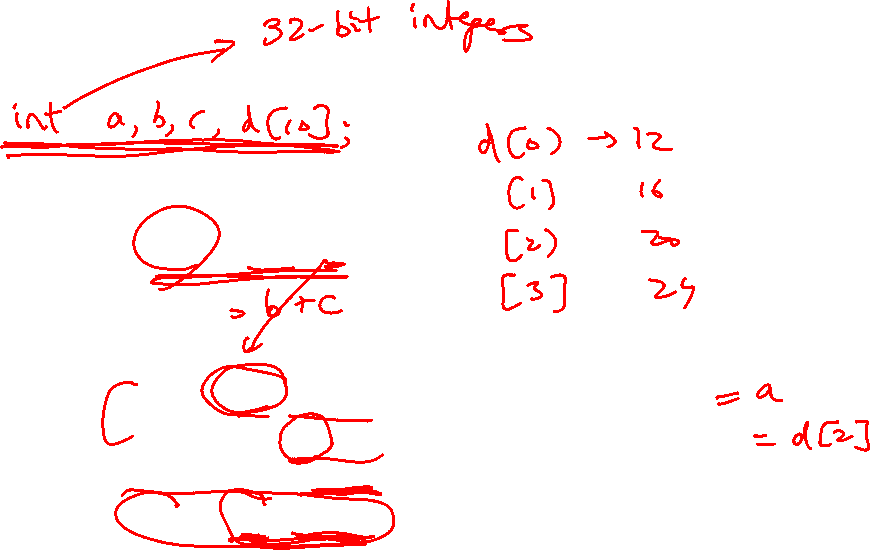 32-bit integers
int a, b, c, d[10];
d[0) → 12
[1] 16
[2) 20
[3] 24
= b + c
C
= a
= d[2]